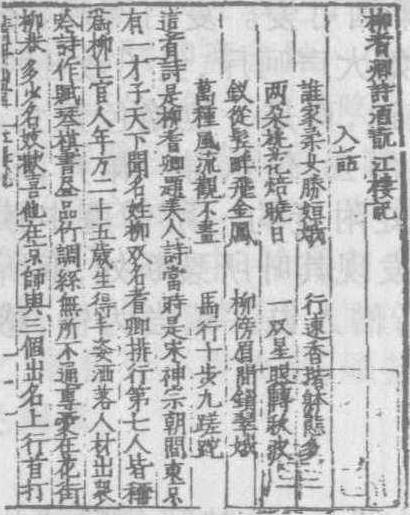 柳耆卿詩酒翫江樓記
入話
誰家柔女勝姮娥　行速香堦躰態多
两朵桃花焙曉日　一双星眼轉秋波
釵從鬢畔飛金鳳　柳傍眉間鎖翠娥
萬種風流觀不盡　馬行十步九蹉跎
這首詩是柳耆卿題美人詩當時是宋神宗朝間東京
有一才子天下聞名姓柳双名耆卿排行第七人皆稱
為柳七官人年方二十五歲生得丰姿洒落人材出衆
吟詩作賦琴棋書畫品竹調絲無所不通專愛在花街
柳巷多少名妓歡喜他在京師與三個出名上行首打